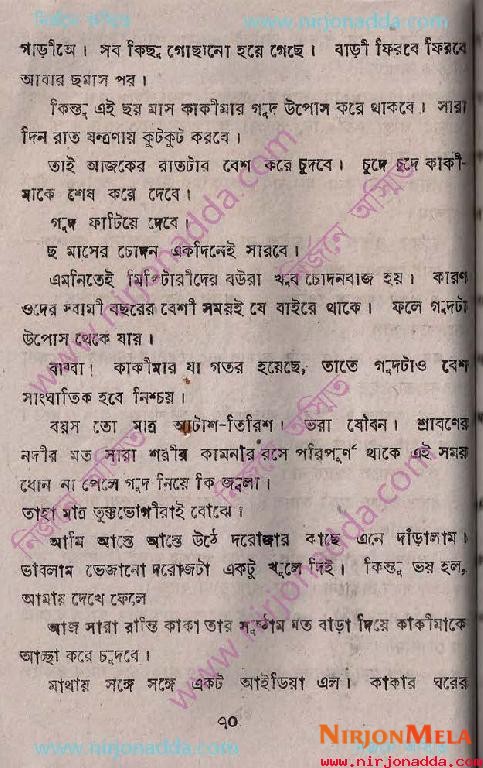 নির্জনে অস্মিত www.nirjonadda.com
গাড়ীতে। সব কিছু গোছানো হয়ে গেছে। বাড়ী ফিরবে ফিরবে
আবার ছমাস পর।
কিন্তু এই ছয় মাস কাকীমার গুদ উপোস করে থাকবে। সারা
দিন রাত যন্ত্রণায় কুটকুট করবে।
তাই আজকের রাতটাব বেশ করে চুদবে। চুদে চুদে কাকী-
মাকে শেষ করে দেবে।
গুদ ফাটিয়ে দেবে।
ছ মাসের চোদন একদিনেই সারবে।
এমনিতেই মিলিটারীদের বউরা খুব চোদনবাজ হয়। কারণ
ওদের স্বামী বছরের বেশী সময়ই যে বাইরে থাকে। ফলে গুদটা
উপোস থেকে যায়।
বাব্বা! কাকীমার যা গতর হয়েছে, তাতে গুদটাও বেশ
সাংঘাতিক হবে নিশ্চয়।
বয়স তো মাত্র আটাশ-তিরিশ। ভরা যৌবন। শ্রাবণের
নদীর মত সারা শরীর কামনার রসে পরিপূর্ণ থাকে এই সময়
ধোন না পেলে গুদ নিয়ে কি জ্বলা।
তাহা মাত্র ভুক্তভোগীরাই বোঝে।
আমি আস্তে আস্তে উঠে দরোজার কাছে এসে দাঁড়ালাম।
ভাবলাম ভেজানো দরোজটা একটু খুলে দিই। কিন্তু ভয় হল,
আমায় দেখে ফেলে
আজ সারা রাত্তি কাকা তার মত বাড়া দিয়ে কাকীমাকে
আচ্ছা করে চুদবে।
মাথায় সঙ্গে সঙ্গে একট আইডিয়া এল। কাকার ঘরের
৭০
NIRJONMELA
www.nirjonadda.com
www.nirjonadda.com